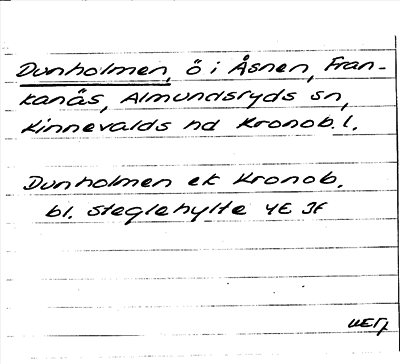 Dunholmen, ö i Åsnen, Fran-
kanäs, Almundsryds sn,
Kinnevalds hd Kronob. l.
Dunholmen ek Kronob.
bl. Steglehylte 4E JF